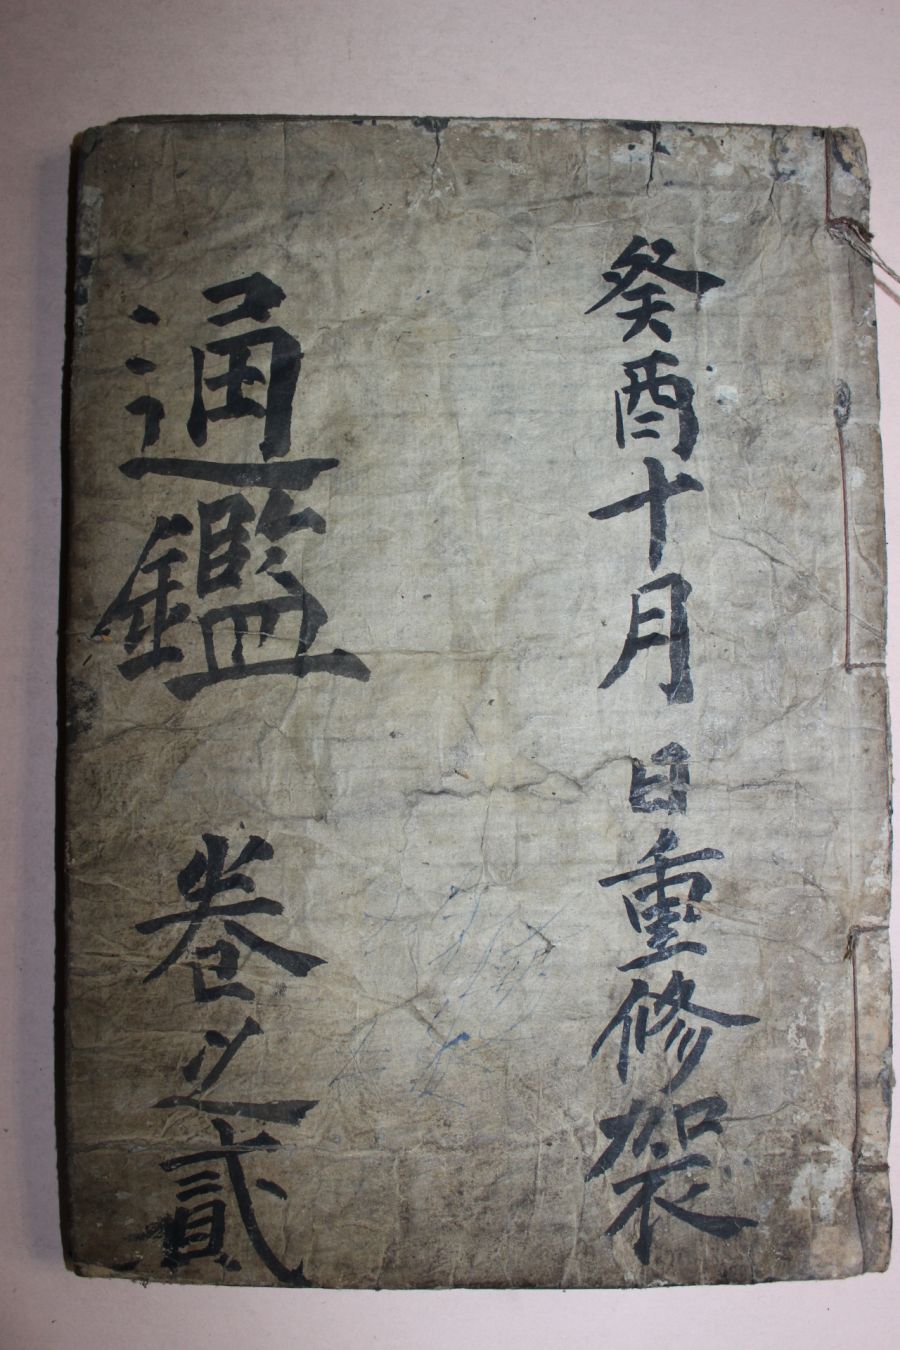 癸酉十月 日重修袈
通鑑 卷之貳